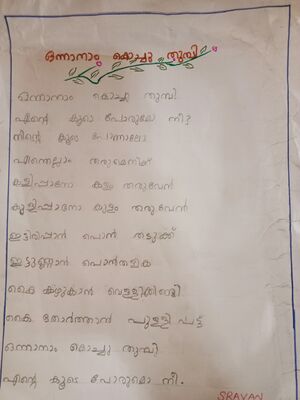 ഒന്നാനാം കൊച്ചു തുമ്പി
ഒന്നാനാം കൊച്ചു തുമ്പി
എന്റെ കൂടെ പോരുമോ നീ?
നിന്റെ കൂടെ പോന്നാലോ
എന്തെല്ലാം തരുമെനിക്ക്
കളിപ്പാനോ കളം തരുവേൻ
കുളിപ്പാനോ കുളം തരുവേൻ
ഇട്ടിരിപ്പാൻ പൊൻ തടുക്ക്
ഇട്ടുണ്ണാൻ പൊൻതളിക
കൈ കഴുകാൻ വെള്ളിക്കിണ്ടി
കൈ തോർത്താൻ പുള്ളി പട്ട്
ഒന്നാനാം കൊച്ചു തുമ്പി
എന്റെ കൂടെ പോരുമൊ നീ.
SRAVAN